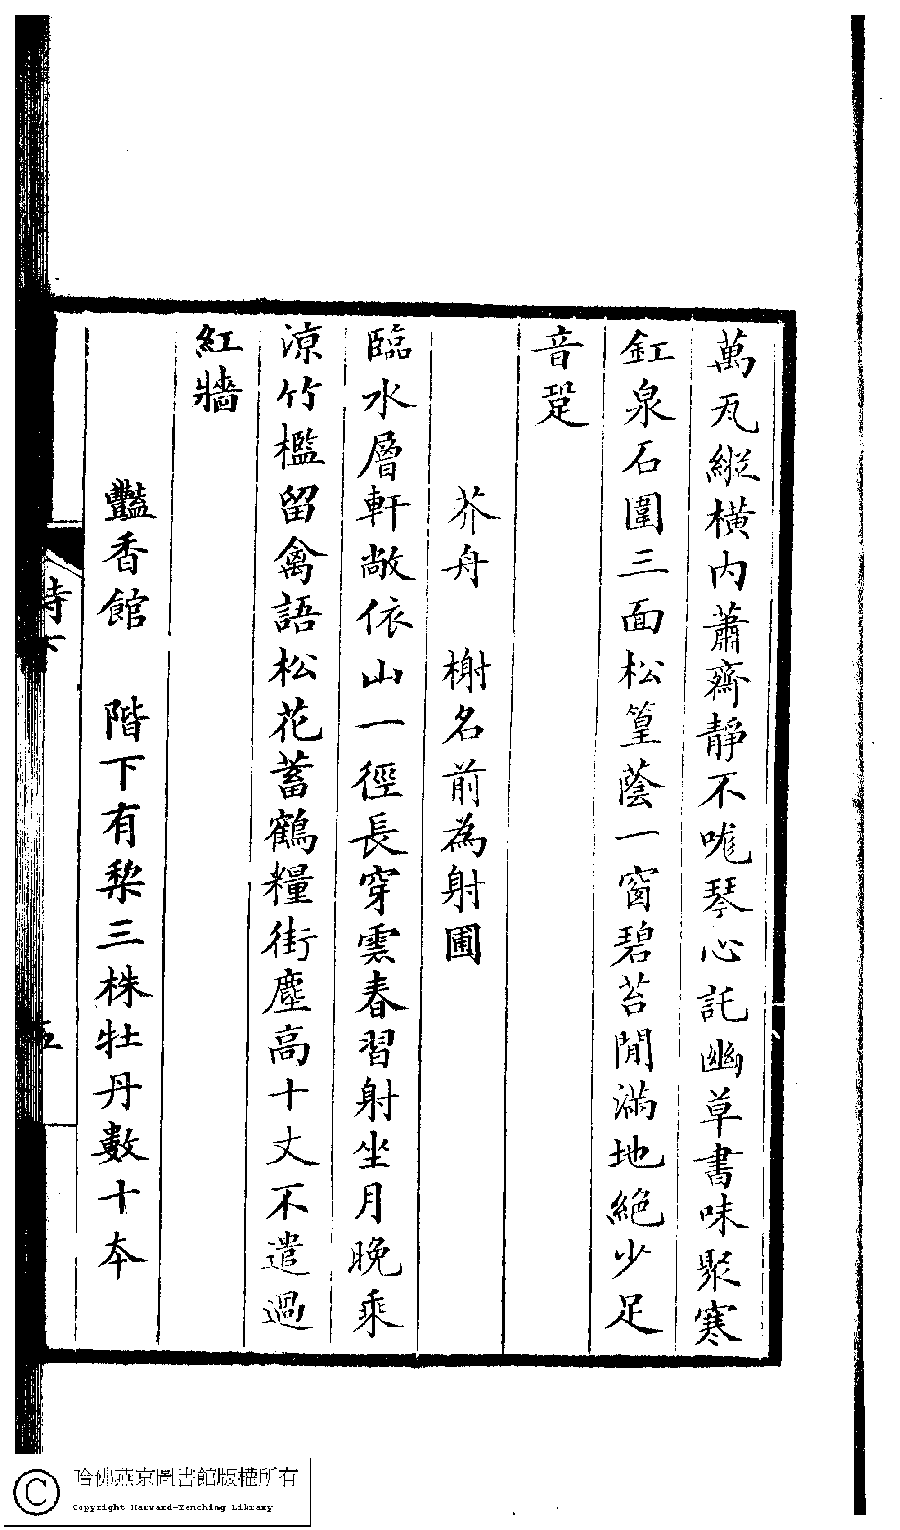 萬瓦縱橫內蕭齋靜不哤琴心託幽草書味聚寒
釭泉石圍三面松篁蔭一窗碧苔閒滿地絕少足
音跫
芥舟　榭名前為射圃
臨水層軒敞依山一徑長穿雲春習射坐月晚乘
涼竹檻留禽語松花蓄鶴糧街塵高十丈不遣過
紅牆
豔香館　階下有棃三株牡丹數十本
詩下
五
哈佛燕京圖書館版權所有
Copyright Harvard-Yenching Library